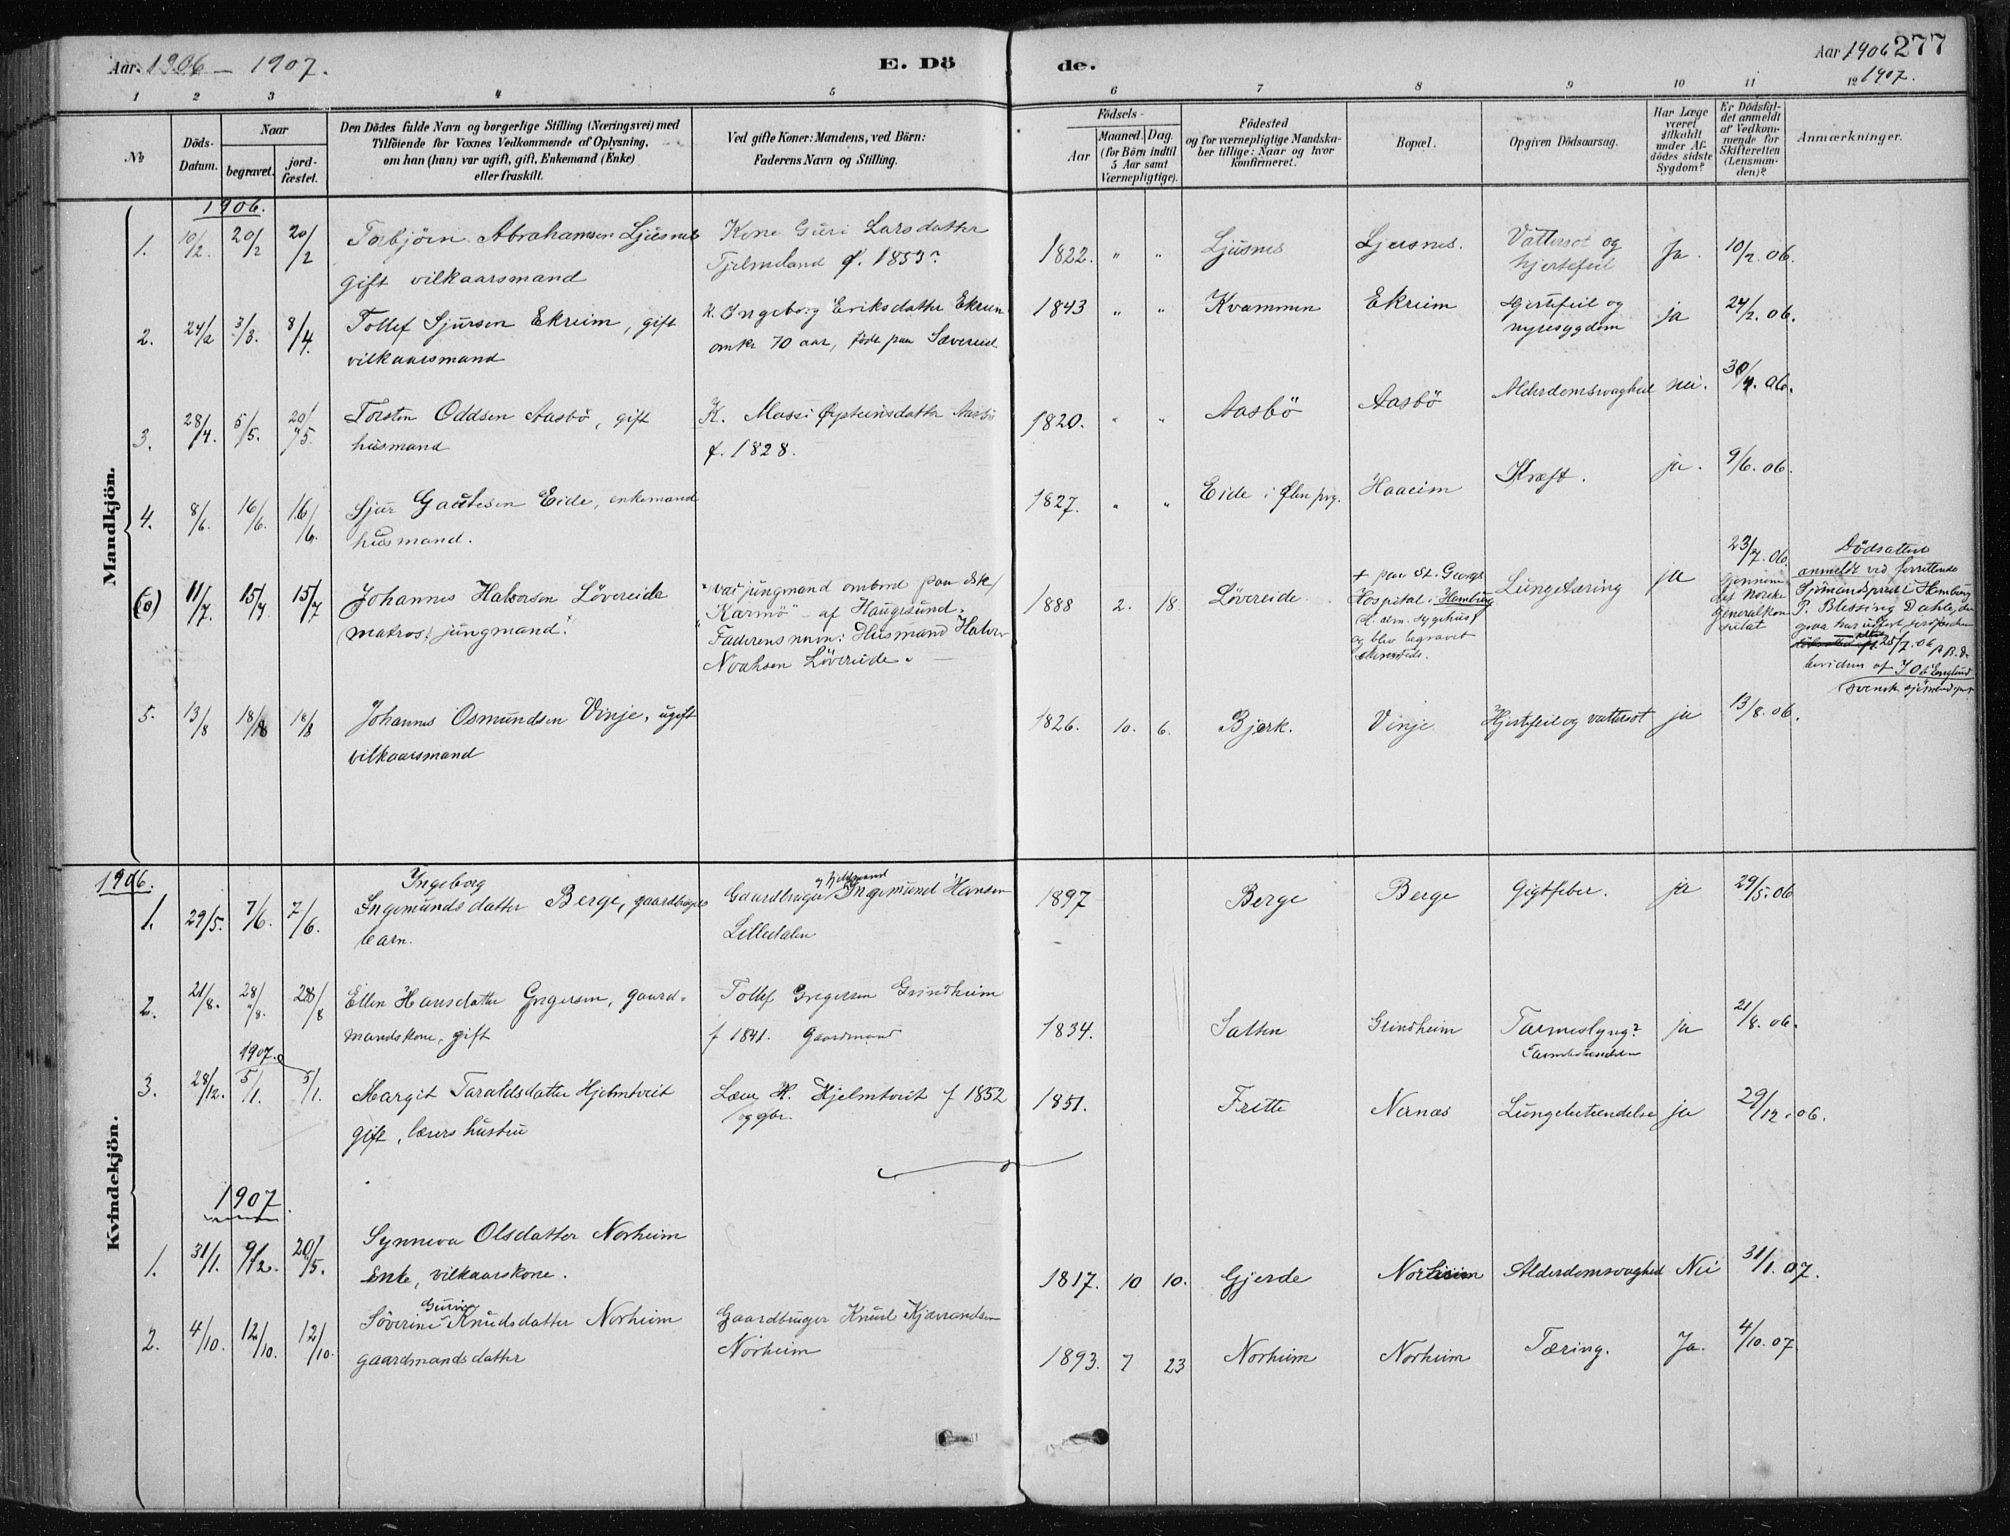 Aar. 1906 – 1907.
E. Dö de.
Aar 1906 277
1907.
1 2 3 4 5 6 7 8 9 10 11 12
No
Döds-Datum.
Naar
begravet.
jord-fæstet.
Den Dödes fulde Navn og borgerlige Stilling (Næringsvei) med
Tilföiende for Voxnes Vedkommende af Oplysning,
om han (hun) var ugift, gift, Enkemand (Enke)
eller fraskilt.
Ved gifte Koner: Mandens, ved Börn:
Faderens Navn og Stilling.
Födsels-
Aar
Maaned. Dag.
(for Börn indtil
5 Aar samt
Værnepligtige).
Födested
og for værnepligtige Mandska-
ber tillige: Naar og hvor
konfirmeret.
Bopæl.
Opgiven Dödsaarsag.
Har Læge
været
tilkaldt
under Af-
dödes sidste
Sygdom?
Er Dödsfal-
det anmeldt
af Vedkom-
mende for
Skifteretten
(Lensman-
den)?
Anmærkninger.
Mandkjön.
1906.
1. 10/2. 20/2 20/2 Torbjörn Abrahamsen Ljusnes Kone Guri Larsdatter 1822. " " Ljusnes Ljusnes. Vattersot og Ja. 10/2. 06.
gift vilkaarsmand Tjelmeland f. 1853? hjertefeil
2. 24/2 3/3. 8/4. Tollef Sjursen Ekreim, gift K. Ingeborg Eriksdatter Ekreim 1843 " " Kvammen Ekreim Hjertefeil og ja 24/2. 06.
vilkaarsmand omkr 70 aar, födt paa Sævereid nyresygdom
3. 28/4. 5/5. 20/5. Torsten Oddsen Aasbö, gift K. Massi Öysteinsdatter Aasbö 1820. " " Aasbö Aasbö Alderdomsvaghed nei. 30/4. 06.
husmand f. 1828.
4. 8/6. 16/6. 16/6. Sjur Gautesen Eide, enkemand 1827. " " Eide i Ölen prg. Haaeim Kræft. ja. 9/6. 06.
husmand.
11/7. 15/7 15/7 Johannes Halvorsen Lövereide "var jungmand ombord paa dsk/ 1888 2. 18. Lövereide + paa St. Georgs Lungetæring ja 23/7. 06.
(matros) jungmand. "Karmö" af Haugesund. Hospital i Hamburg gjennem
Faderens navn: Husmand Halvor og blev begravet det norske
Noahsen Lövereide. generalkon
sulat
Dödsatten
anmeldt ved forrettende
Sjömandsprest i Hamburg
P. Blessing Dahle, der
25/7. 06
svensk sjömandsprest
5. 13/8 18/8 18/8 Johannes Osmundsen Vinje, ugift 1826. 10. 6. Bjerk. Vinje Hjertefeil og vattersot ja 13/8. 06.
vilkaarsmand
Kvindekjön.
1906.
1. 29/5. 7/6. 7/6. Ingeborg
Ingemundsdatter Berge, gaardbrugers Gaardbruger Ingemund Hansen 1897 Berge Berge Gigtfeber. ja 29/5. 06
barn. Lilledalen
2. 21/8. 28/8. 28/8 Ellen Hansdatter Gregersen, gaard- Tollef Gregersen Grindheim 1834. Satten Grindheim Tarmeslyng? ja 21/8. 06.
mandskone, gift f 1841. Gaardmand Tarmbetændelse
1907.
3. 28/12. 5/1. 5/1. Margit Taraldsdatter Hjelmtveit Lærer H. Hjelmtveit f 1852 1851. Fritte Nernæs Lungebetændelse ja 29/12. 06.
gift, lærers hustru og gbr.
1907
1. 31/1. 9/2. 20/5. Synneva Olsdatter Norheim 1817. 10 10. Gjerde Norheim Alderdomsvaghed Nei 31/1. 07.
Enke, vilkaarskone.
2. 4/10. 12/10. 12/10. Söverine Knudsdatter Norheim Gaardbruger Knud Kjærandsen 1893. 7 23 Norheim Norheim Tæring. Ja. 4/10. 07.
gaardmandsdatter Norheim